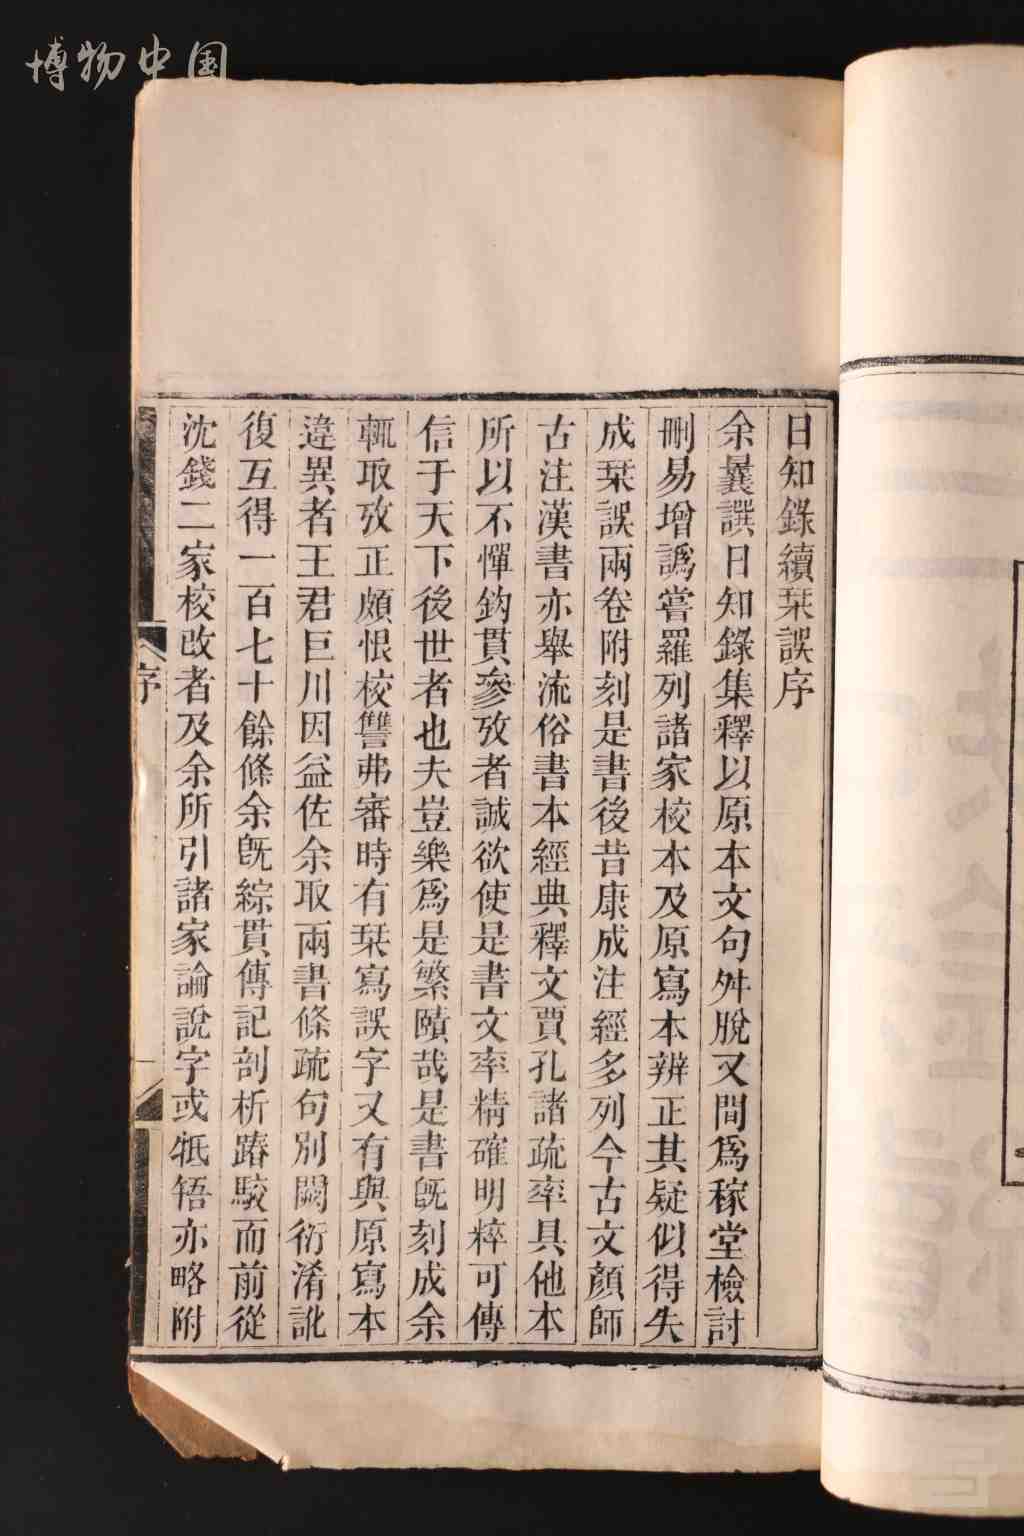 博物中国
日知錄續栞誤序
余曩譔日知錄集釋以原本文句舛脫又間爲稼堂檢討
刪易增譌嘗羅列諸家校本及原寫本辨正其疑似得失
成栞誤兩卷附刻是書後昔康成注經多列今古文顏師
古注漢書亦舉流俗書本經典釋文賈孔諸疏率具他本
所以不憚鉤貫參攷者誠欲使是書文率精確明粹可傳
信于天下後世者也夫豈樂爲是繁賾哉是書旣刻成余
輒取攷正頗恨校讐弗審時有栞寫誤字又有與原寫本
違異者王君巨川因益佐余取兩書條疏句別闕衍淆訛
復互得一百七十餘條余旣綜貫傳記剖析踳駮而前從
沈錢二家校改者及余所引諸家論說字或牴牾亦略附
序